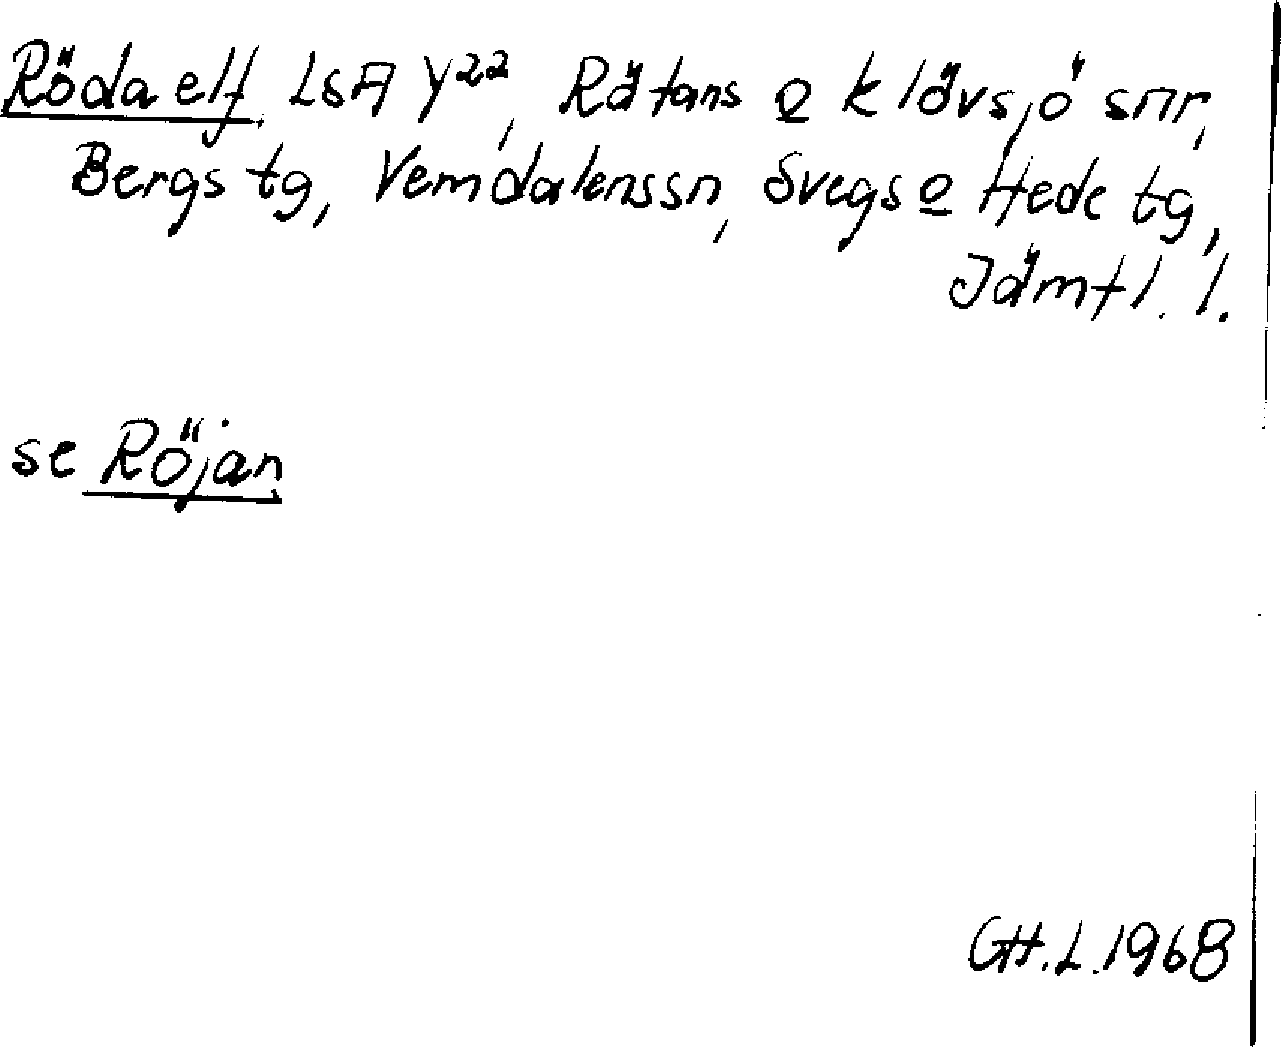 Röda elf. LSA Y²², Rätans o Klövsjö snr,
Bergs tg, Vemdalens sn, Svegs o Hede tg,
Jämtl. l.
se Röjan
GH.L.1968